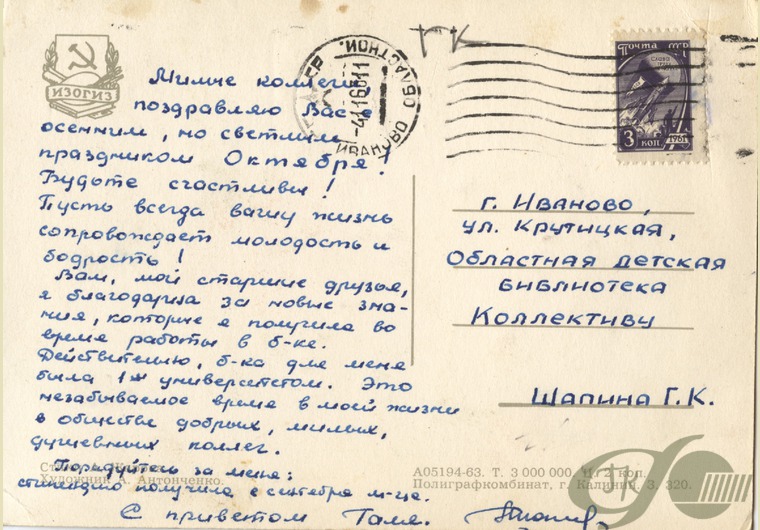 ИЗОГИЗ
ИВАНОВО ОБЛАСТНОЙ
Почта
3 коп. 1961
Милые коллеги,
поздравляю Вас с
осенним, но светлым
праздником Октября!
Будьте счастливы!
Пусть всегда вашу жизнь
сопровождает молодость и
бодрость!
Вам, мои старшие друзья,
я благодарна за новые зна-
ния, которые я получила во
время работы в б-ке.
Действительно, б-ка для меня
была 1ым университетом. Это
незабываемое время в моей жизни
в обществе добрых, милых,
душевных коллег.
Порадуйтесь за меня:
стипендию получила с сентября м-ца.
С приветом Галя.
г. Иваново,
ул. Крутицкая,
Областная детская
библиотека
Коллективу
Шапина Г.К.
Художник А. Антонченко.
А05194-63. Т. 3 000 000. Ц. 2 коп.
Полиграфкомбинат, г. Калинин. З. 320.